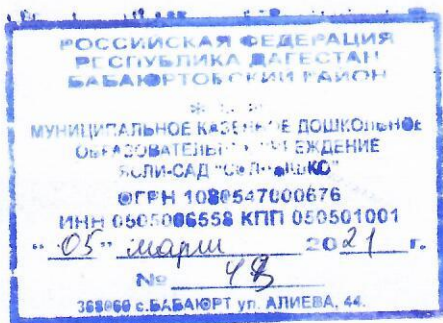 РОССИЙСКАЯ ФЕДЕРАЦИЯ
РЕСПУБЛИКА ДАГЕСТАН
БАБАЮРТОВСКИЙ РАЙОН
МУНИЦИПАЛЬНОЕ КАЗЕННОЕ ДОШКОЛЬНОЕ
ОБРАЗОВАТЕЛЬНОЕ УЧРЕЖДЕНИЕ
ЯСЛИ-САД "СОЛНЫШКО"
ОГРН 1080547000676
ИНН 0505006558 КПП 050501001
"05" марта 2021 г.
№
368060 с.БАБАЮРТ ул. АЛИЕВА, 44.